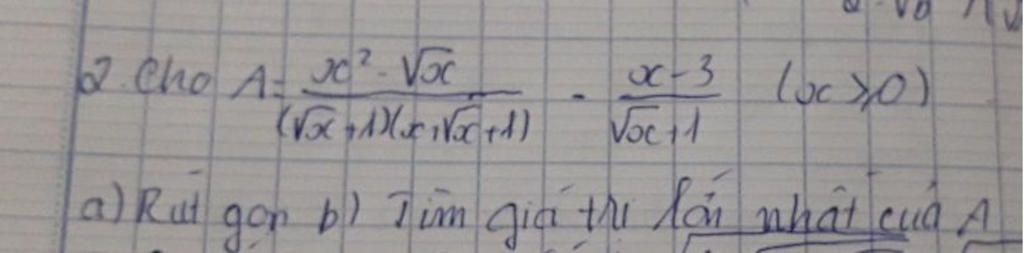 2. Cho A = \frac{x² - √x}{(√x + 1)(x + √x + 1)} - \frac{x - 3}{√x + 1} (x ≥ 0)
a) Rút gọn b) Tìm giá trị lớn nhất của A